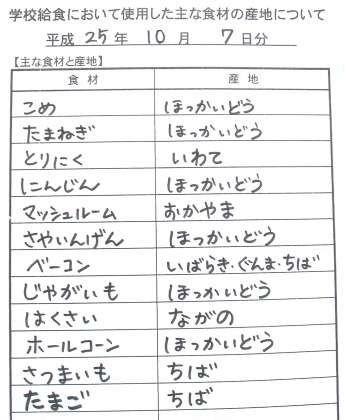 学校給食において使用した主な食材の産地について
平成 25 年 10 月 7 日分
【主な食材と産地】
食材 産地
こめ ほっかいどう
たまねぎ ほっかいどう
とりにく いわて
にんじん ほっかいどう
マッシュルーム おかやま
さやいんげん ほっかいどう
ベーコン いばらき・ぐんま・ちば
じゃがいも ほっかいどう
はくさい ながの
ホールコーン ほっかいどう
さつまいも ちば
たまご ちば